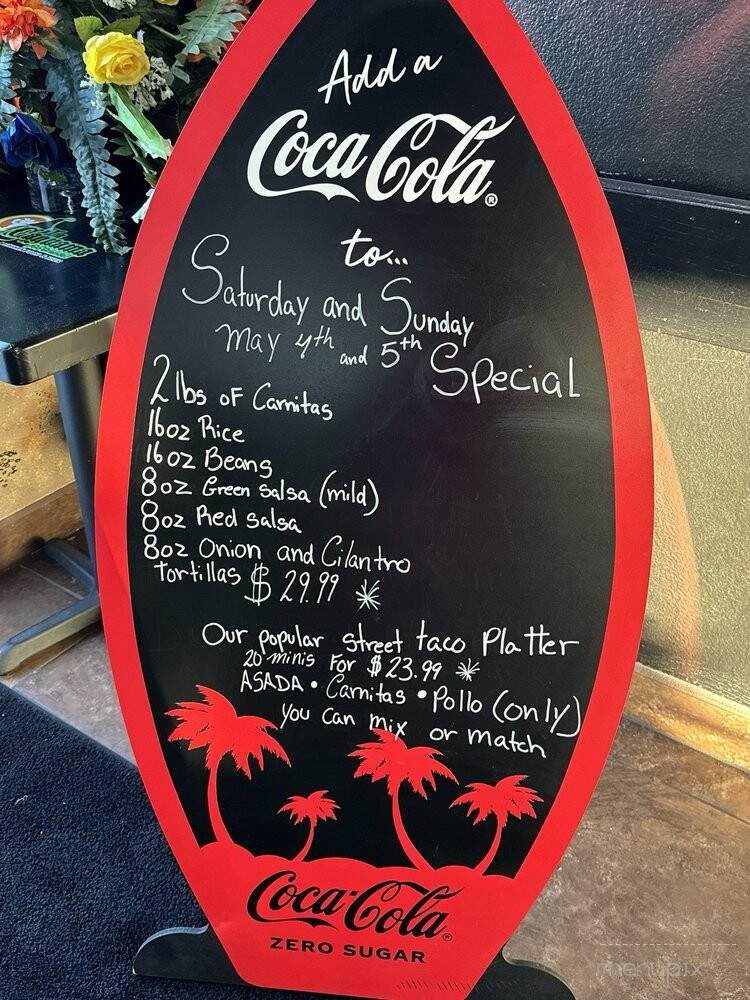 Add a
Coca-Cola®
to...
Saturday and Sunday
May 4th and 5th Special
2 lbs of Carnitas
16oz Rice
16oz Beans
8oz Green Salsa (mild)
8oz Red Salsa
8oz Onion and Cilantro
Tortillas $29.99 *
Our popular street taco Platter
20 minis For $23.99 *
ASADA • Carnitas • Pollo (only)
you can mix or match
Coca-Cola®
ZERO SUGAR
menupix